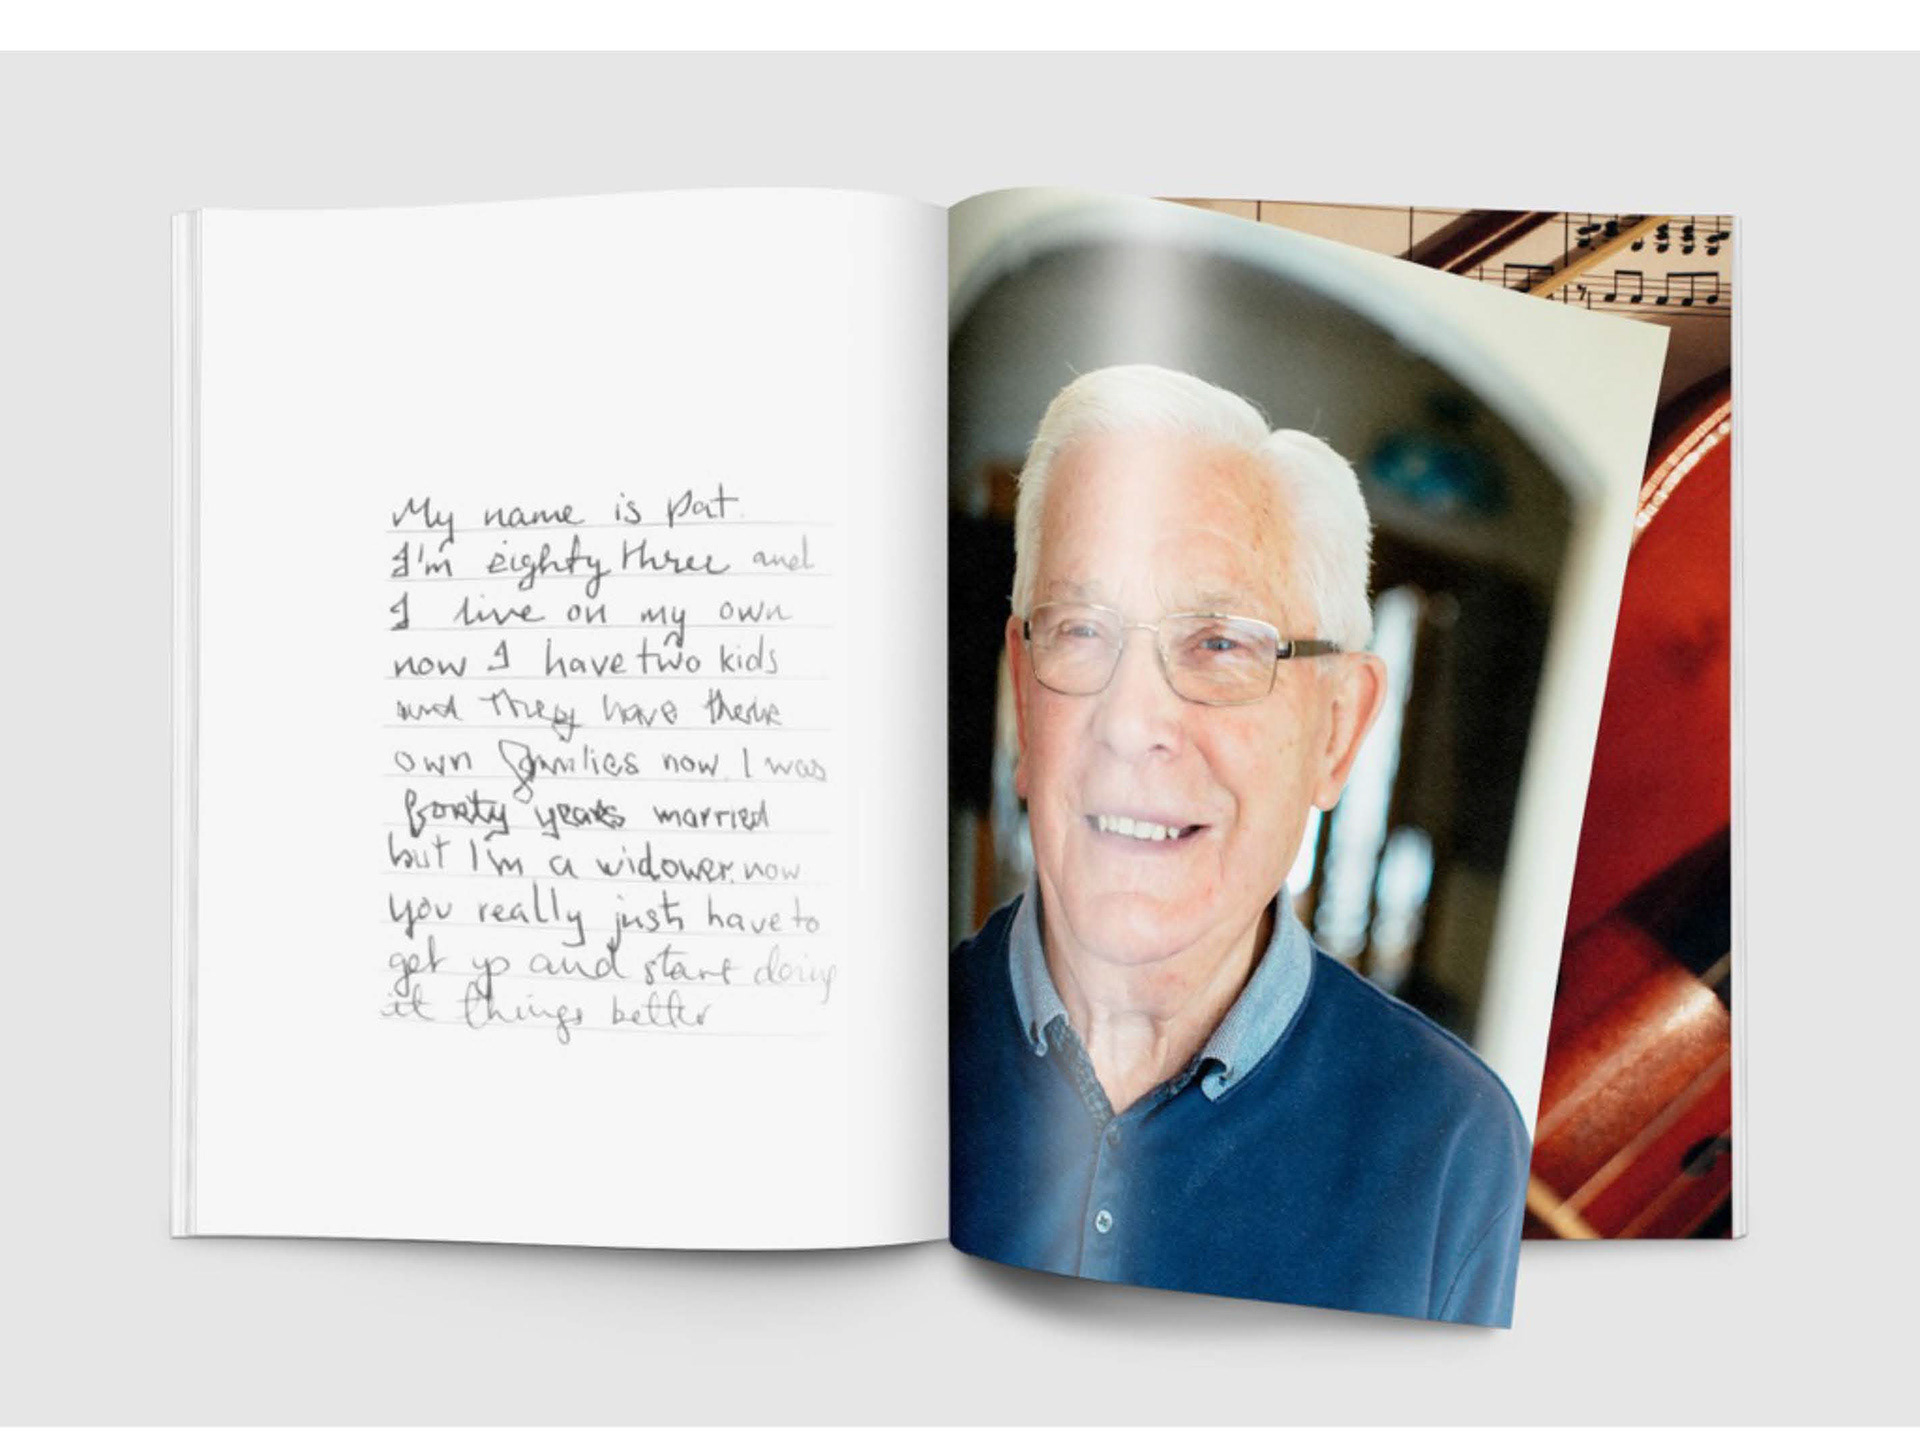 My name is Pat.
I'm eighty three and
I live on my own
now I have two kids
and they have there
own families now. I was
forty years married
but I'm a widower. now
you really just have to
get up and start doing
it things better